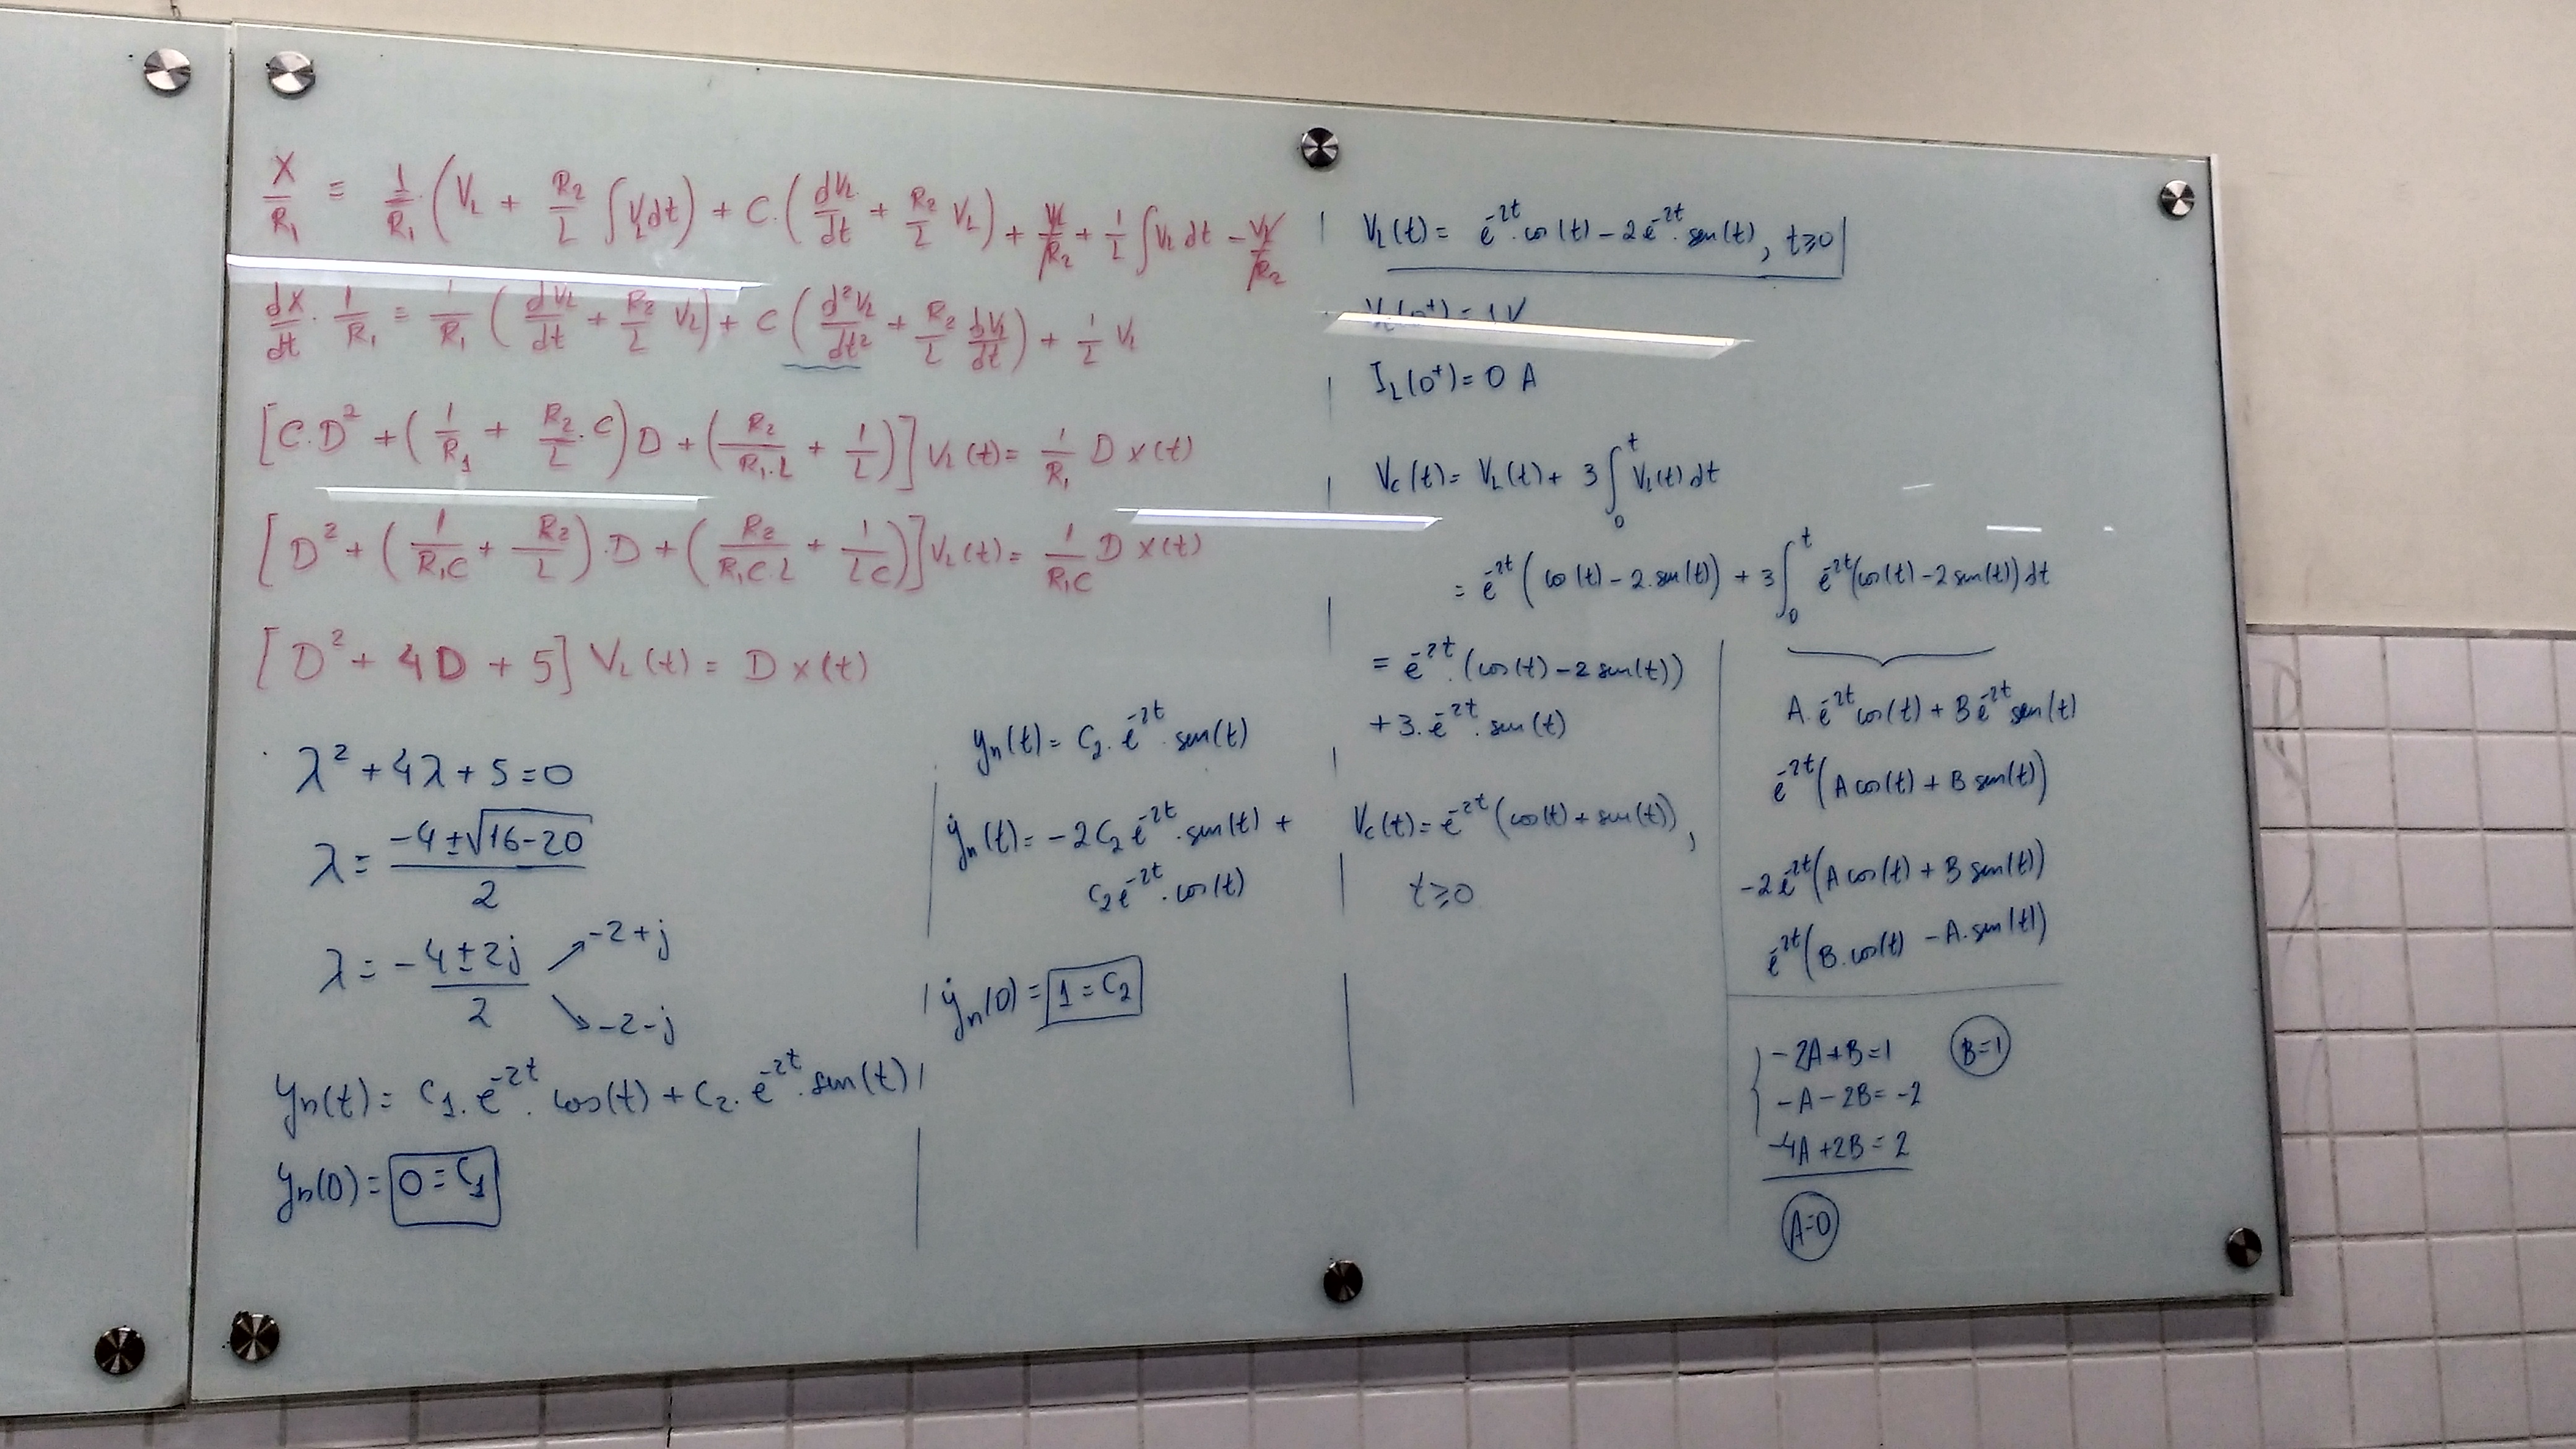 X/R₁ = 1/R₁·(V_L + R₂/L ∫V_L dt) + C·(dV_L/dt + R₂/L V_L) + V_L/R₂ + 1/L ∫V_L dt − V_L/R₂
dX/dt · 1/R₁ = 1/R₁ (dV_L/dt + R₂/L V_L) + C (d²V_L/dt² + R₂/L dV_L/dt) + 1/L V_L
[C·D² + (1/R₁ + R₂/L·C)D + (R₂/R₁·L + 1/L)] V_L(t) = 1/R₁ D x(t)
[D² + (1/R₁C + R₂/L)·D + (R₂/R₁C·L + 1/LC)] V_L(t) = 1/R₁C D x(t)
[D² + 4D + 5] V_L(t) = D x(t)
λ² + 4λ + 5 = 0
λ = (−4 ± √16−20)/2
λ = (−4 ± 2j)/2 ↗ −2+j
↘ −2−j
yₙ(t) = C₁·e^−2t·cos(t) + C₂·e^−2t·sen(t)
yₙ(0) = 0 = C₁
yₙ(t) = C₂·e^−2t·sen(t)
ẏₙ(t) = −2C₂e^−2t·sen(t) +
C₂e^−2t·cos(t)
ẏₙ(0) = 1 = C₂
V_L(t) = e^−2t·cos(t) − 2e^−2t·sen(t), t≥0
V_L(0⁺) = 1V
I_L(0⁺) = 0 A
V_C(t) = V_L(t) + 3∫₀ᵗ V_L(t) dt
= e^−2t (cos(t) − 2·sen(t)) + 3∫₀ᵗ e^−2t(cos(t) − 2sen(t)) dt
= e^−2t·(cos(t) − 2sen(t))
+ 3·e^−2t·sen(t)
V_C(t) = e^−2t (cos(t) + sen(t)),
t≥0
A·e^−2t cos(t) + Be^−2t sen(t)
e^−2t (A cos(t) + B sen(t))
−2e^−2t (A cos(t) + B sen(t))
e^−2t (B·cos(t) − A·sen(t))
−2A+B=1 B=1
−A−2B=−2
−4A+2B=2
A=0